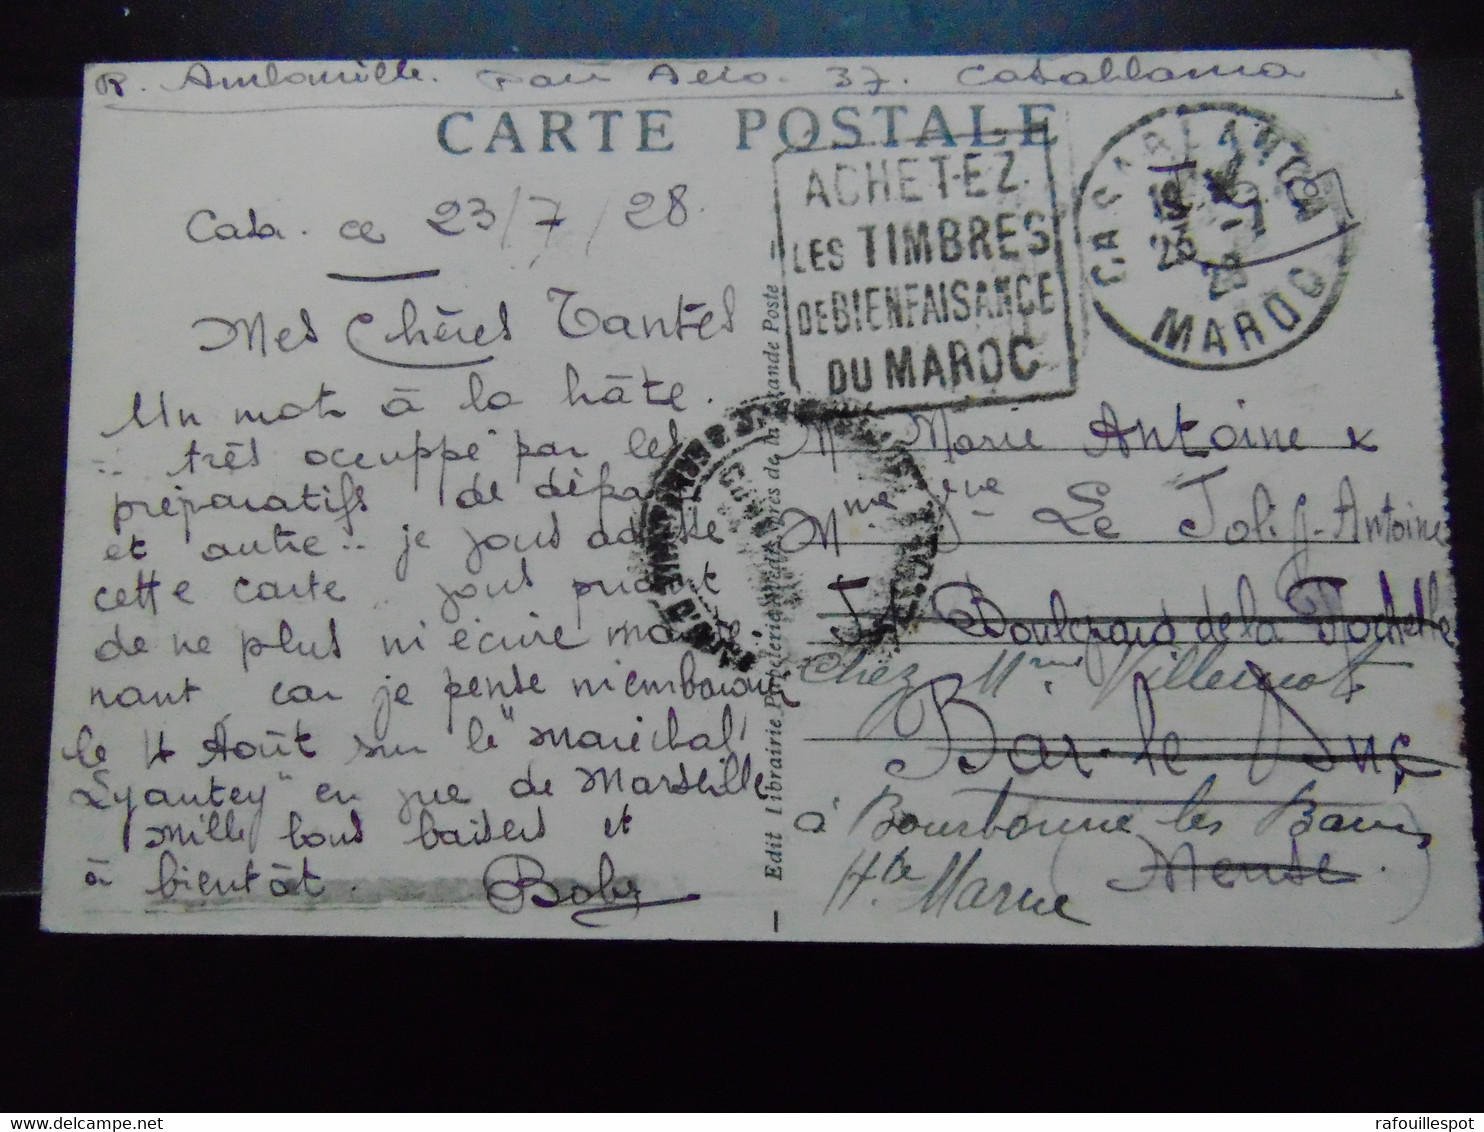 R. Antonille. Parc Aéro. 37. Casablanca
CARTE POSTALE
ACHETEZ
LES TIMBRES
DE BIENFAISANCE
DU MAROC
CASABLANCA
MAROC
Casa. ce 23/7/28.
Mes Chères Tantes
Un mot à la hâte.
très occuppé par les
préparatifs de départ
et autre.. je vous adresse
cette carte vous priant
de ne plus m'écrire mainte
nant car je pense m'embarquer
le 4 Août sur le "Maréchal
Lyautey" en vue de Marseille
Mille bons baisers et
à bientôt. Boby
Edit Librairie Papeterie près de la Grande Poste
Marie Antoine &
Mme Vve Le Jolif-Antoine
Boulevard de la Rochelle
Chez Mme Villeminot
Bar-le-Duc
à Bourbonne les Bains
(Meuse)
Hte Marne
delcampe.net
rafouillespot